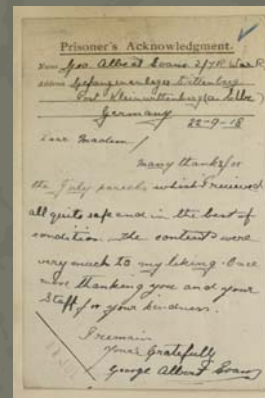 Prisoner's Acknowledgment.
Name Geo. Albert Evans 2/7 R. War. R
Address Gefangenenlager Wittenberg
Post Kleinwittenberg (a. Elbe)
Germany
22-9-18
Dear Madam/
Many thanks for
the July parcels which I recieved
all quite safe and in the best of
condition. The contents were
very much to my liking. Once
more thanking you and your
Staff, for your kindness.
I remain
Yours Gratefully
George Albert Evans